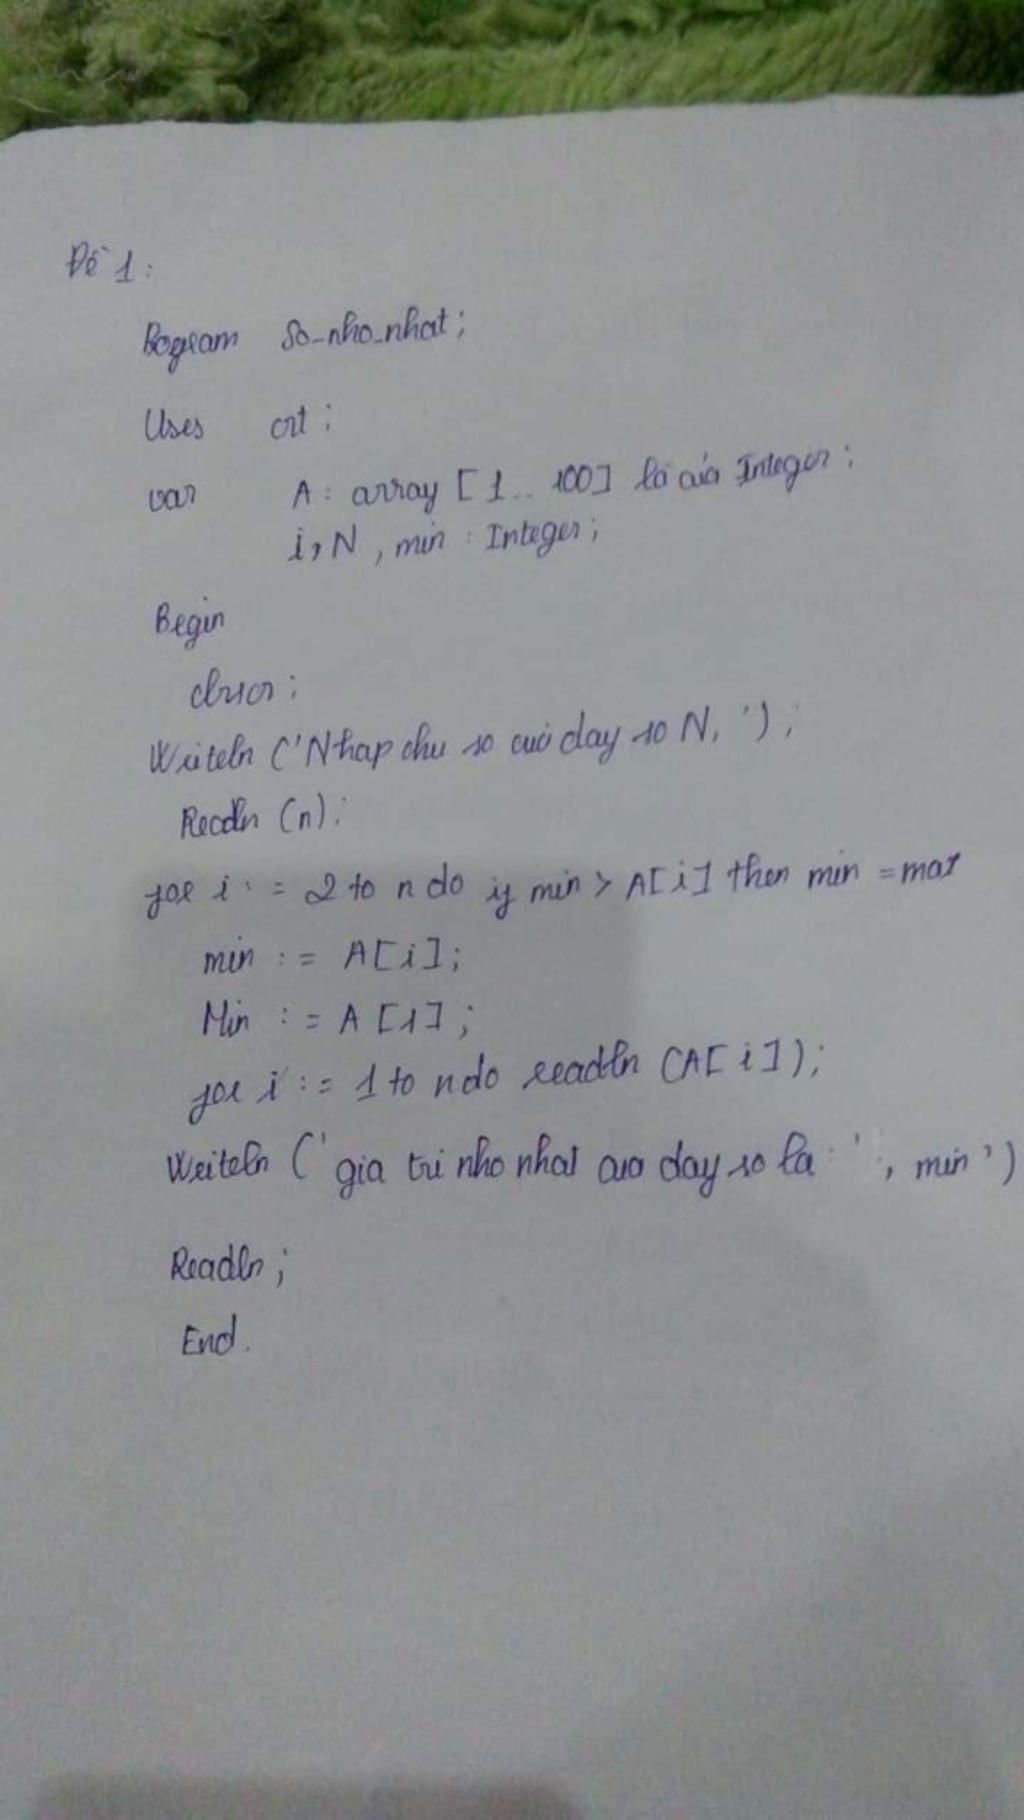 Đề 1:
Program So_nho_nhat;
Uses crt;
var A: array [1.. 100] là của Integer;
i, N, min : Integer;
Begin
clrscr;
Writeln ('Nhap chu so cuả day so N, ');
Readln (n);
for i := 2 to n do if min > A[i] then min = max
min := A[i];
Min := A[1];
for i := 1 to n do readln (A[i]);
Writeln (' gia tri nho nhat cua day so la: ' , min ')
Readln;
End.